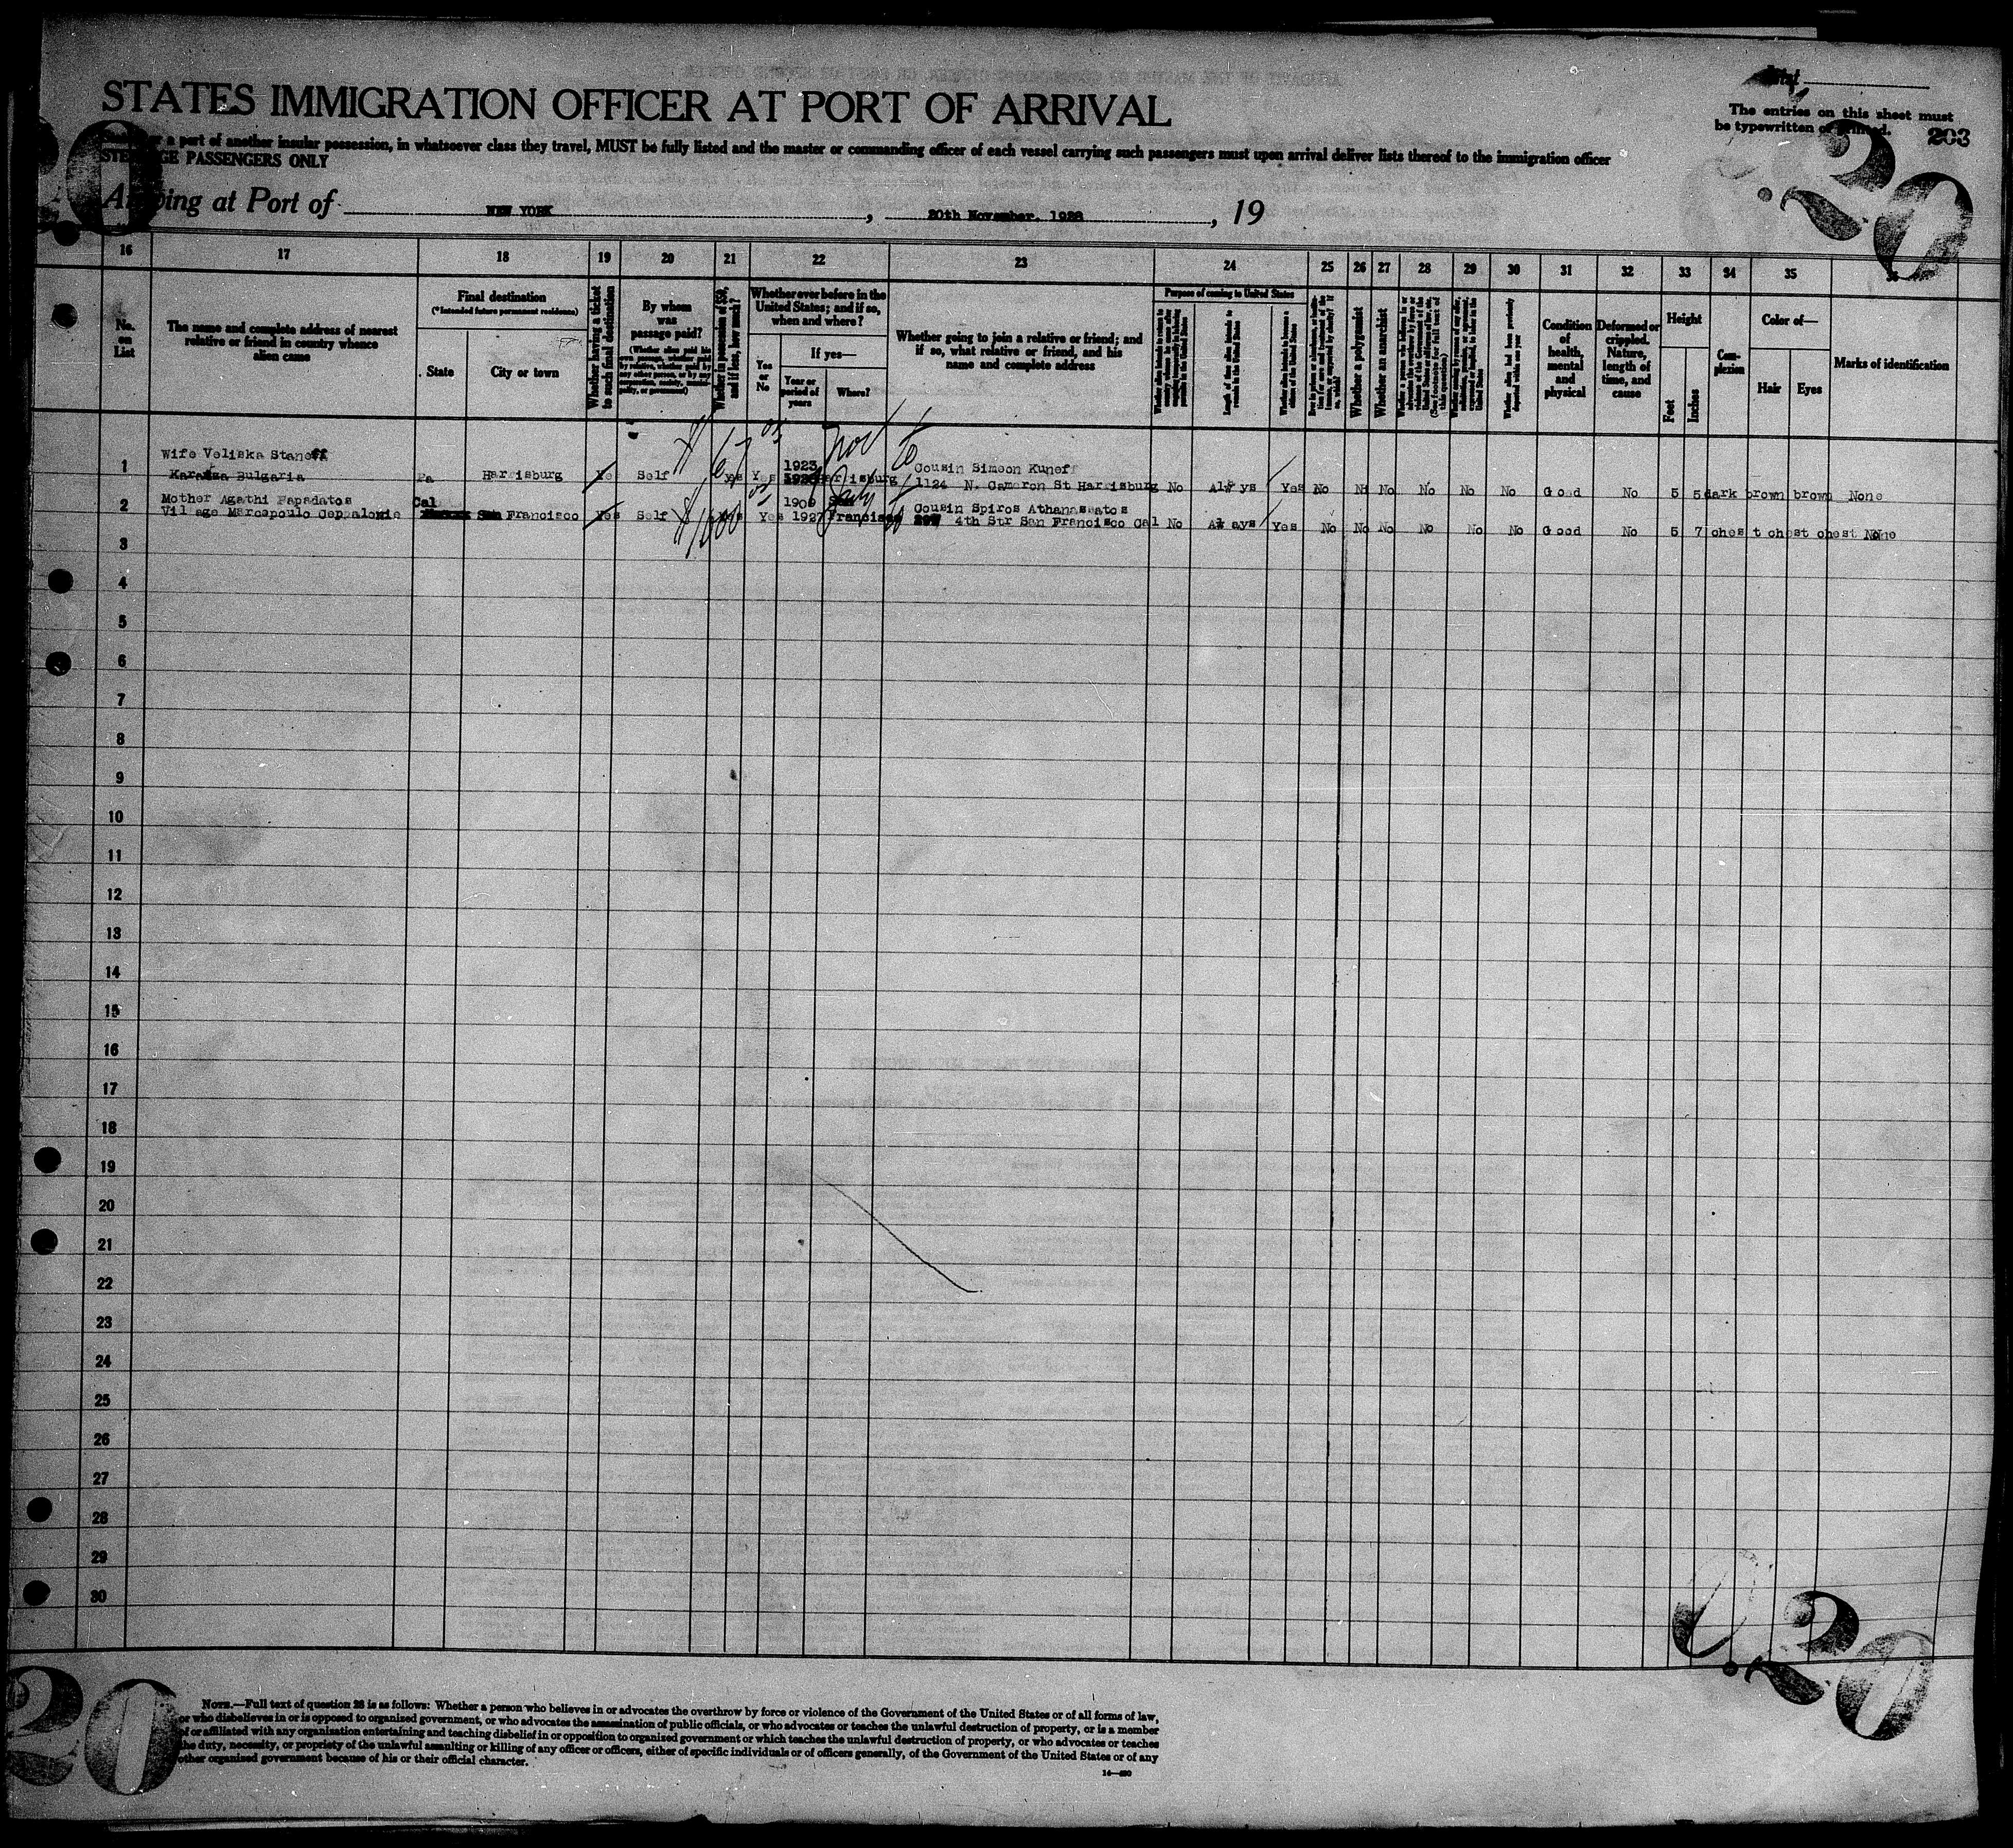 STATES IMMIGRATION OFFICER AT PORT OF ARRIVAL
The entries on this sheet must
be typewritten or printed.
203
a part of another insular possession, in whatsoever class they travel, MUST be fully listed and the master or commanding officer of each vessel carrying such passengers must upon arrival deliver lists thereof to the immigration officer
STEERAGE PASSENGERS ONLY
20
20
Arriving at Port of NEW YORK, 20th November. 1928, 19
16 17 18 19 20 21 22 23 24 25 26 27 28 29 30 31 32 33 34 35 36
No. on List
The name and complete address of nearest
relative or friend in country whence
alien came
Final destination
(*Intended future permanent residence)
State
City or town
Whether having a ticket
to such final destination
By whom
was
passage paid?
Whether in possession of $50,
and if less, how much?
Whether ever before in the
United States; and if so,
when and where?
Yes or No
If yes—
Year or
period of
years
Where?
Whether going to join a relative or friend; and
if so, what relative or friend, and his
name and complete address
Purpose of coming to United States
Length of time alien intends to
remain in the United States
Whether alien intends to become a
citizen of the United States
Whether a polygamist
Whether an anarchist
Whether alien had been previously
deported within one year
Condition
of
health,
mental
and
physical
Deformed or
crippled.
Nature,
length of
time, and
cause
Height
Feet
Inches
Com-
plexion
Color of—
Hair
Eyes
Marks of identification
1 Wife Veliska Stanoff
Bulgaria Pa Harrisburg Yes Self yes Yes 1923 Harrisburg
Cousin Simeon Kuneff
1124 N. Cameron St Harrisburg No Always Yes No No No No No No Good No 5 5 dark brown brown None
2 Mother Agathi Papadatos
Village Marcopoulo Cephalonie Cal San Francisco Yes Self $ Yes 1909 1927 San Francisco
Cousin Spiros Athanassatos
4th Str San Francisco Cal No Always Yes No No No No No No Good No 5 7 chest chest chest None
3
4
5
6
7
8
9
10
11
12
13
14
15
16
17
18
19
20
21
22
23
24
25
26
27
28
29
30
20
20
NOTE.—Full text of question 28 is as follows: Whether a person who believes in or advocates the overthrow by force or violence of the Government of the United States or of all forms of law,
or who disbelieves in or is opposed to organized government, or who advocates the assassination of public officials, or who advocates or teaches the unlawful destruction of property, or is a member
of or affiliated with any organization entertaining and teaching disbelief in or opposition to organized government or which teaches the unlawful destruction of property, or who advocates or teaches
the duty, necessity, or propriety of the unlawful assaulting or killing of any officer or officers, either of specific individuals or of officers generally, of the Government of the United States or of any
other organized government because of his or their official character.